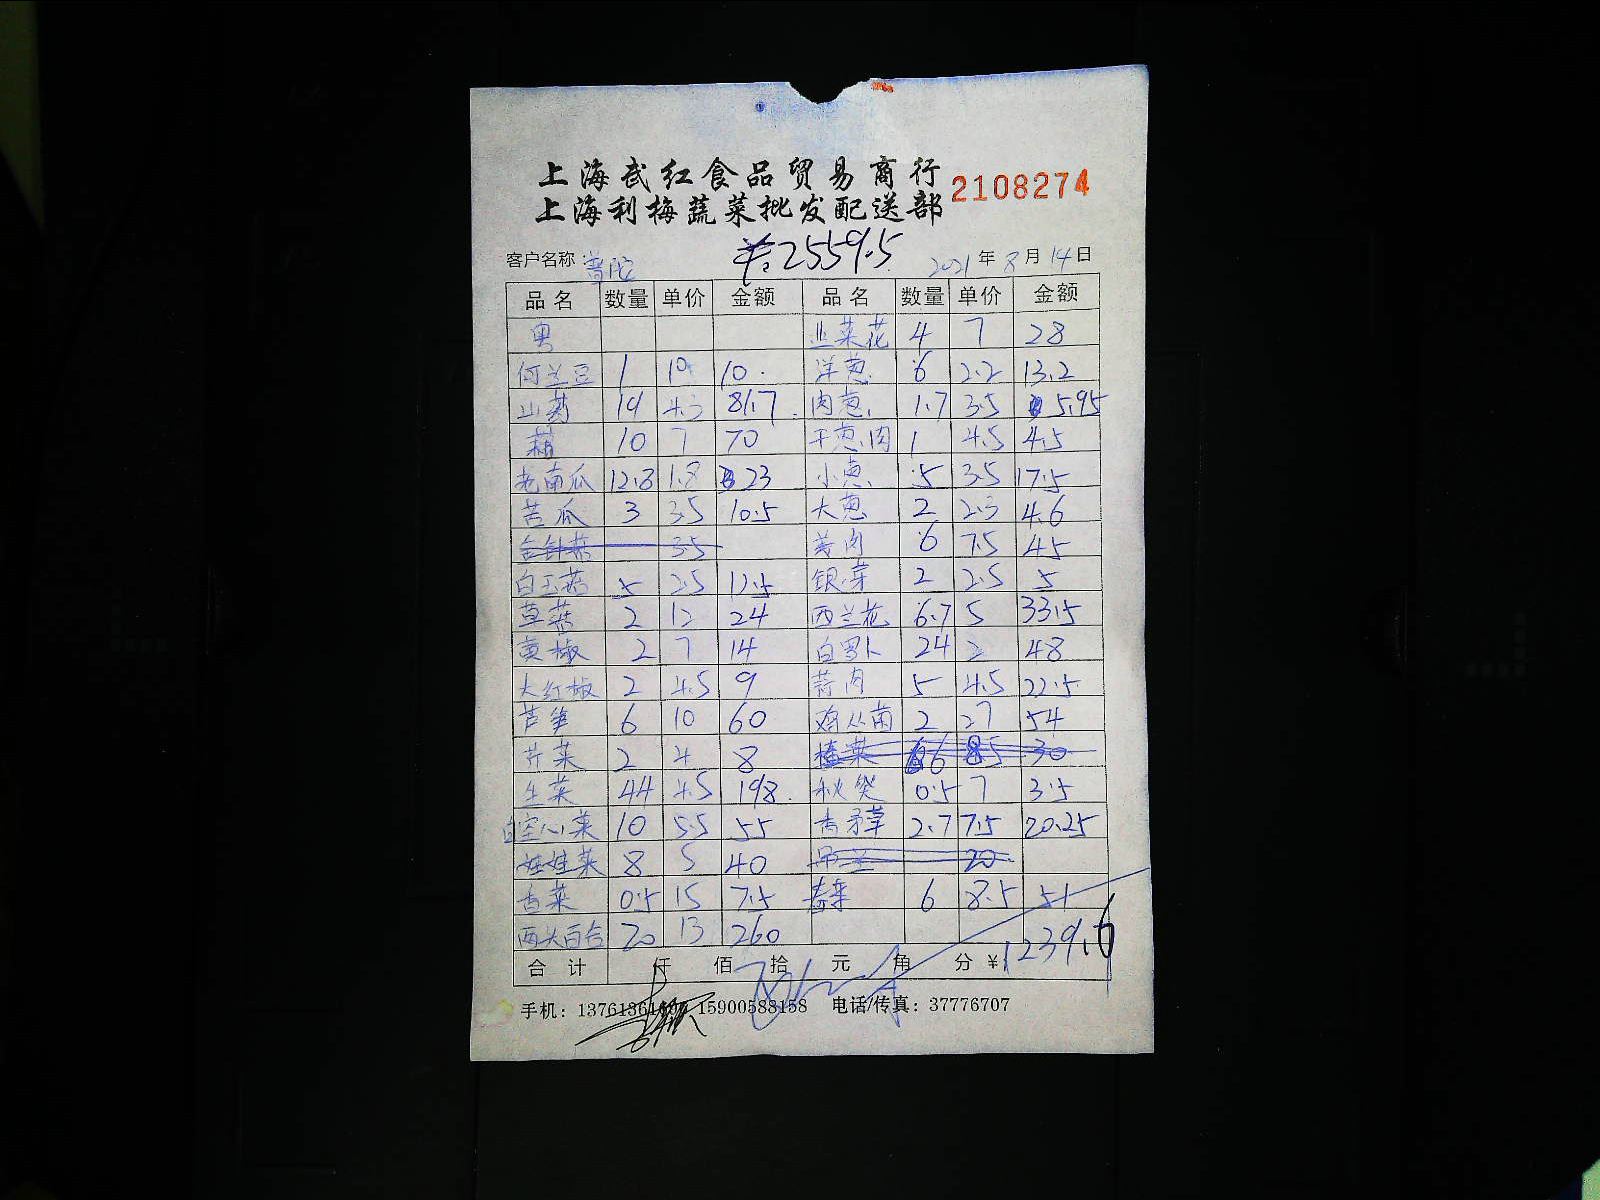 上海武红食品贸易商行
2108274
上海利梅蔬菜批发配送部
客户名称：普陀 ¥：2559.5 2021年8月14日
品名 数量 单价 金额 品名 数量 单价 金额
粤 韭菜花 4 7 28
何兰豆 1 10 10. 洋葱 6 2.2 13.2
山药 19 4.3 81.7 肉葱 1.7 3.5 5.95
藕 10 7 70 干葱肉 1 4.5 4.5
老南瓜 12.8 1.8 23 小葱 5 3.5 17.5
苦瓜 3 3.5 10.5 大葱 2 2.3 4.6
金针菇 3.5 姜肉 6 7.5 45
白玉菇 5 2.5 12.5 银芽 2 2.5 5
草菇 2 12 24 西兰花 6.7 5 33.5
黄椒 2 7 14 白罗卜 24 2 48
大红椒 2 4.5 9 蒜肉 5 4.5 22.5
芦笋 6 10 60 鸡从菌 2 27 54
芹菜 2 4 8 6 8.5 30
生菜 44 4.5 198. 秋葵 0.5 7 3.5
白空心菜 10 5.5 55 香矛草 2.7 7.5 20.25
娃娃菜 8 5 40 20
香菜 0.5 15 7.5 6 8.5 51
西头百合 20 13 260
合计 仟 佰 拾 元 角 分 ¥1239.6
手机：137613616 15900588158 电话/传真：37776707